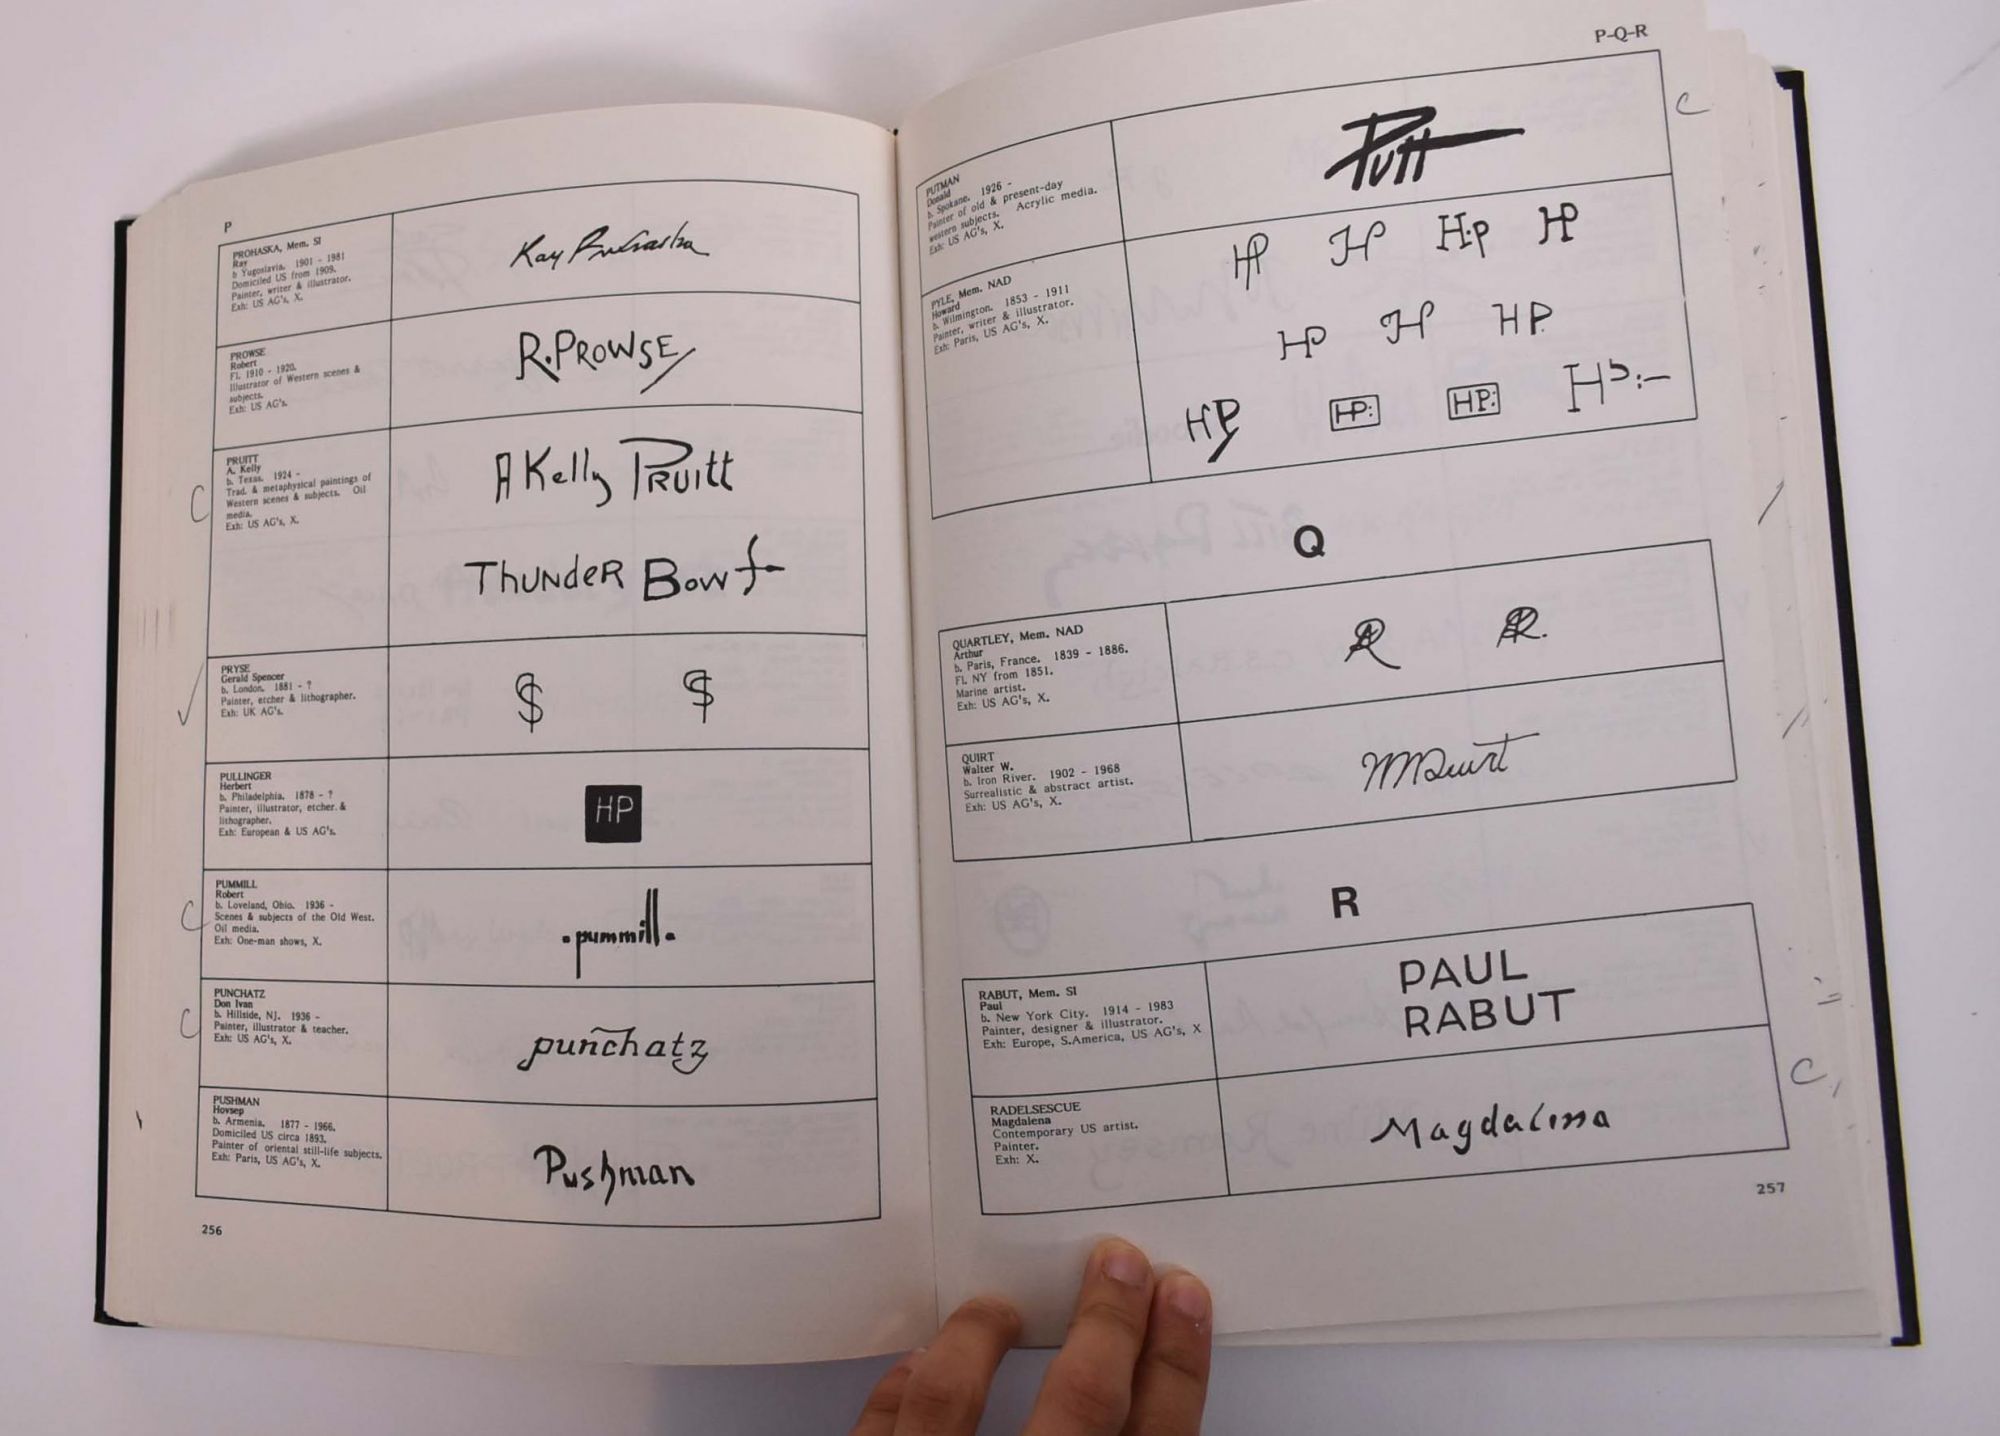 P
PROHASKA, Mem. SI
Ray
b Yugoslavia. 1901 - 1981
Domiciled US from 1909.
Painter, writer & illustrator.
Exh: US AG's, X.
Ray Prohaska
PROWSE
Robert
Fl. 1910 - 1920.
Illustrator of Western scenes &
subjects.
Exh: US AG's.
R. PROWSE
PRUITT
A. Kelly
b. Texas. 1924 -
Trad. & metaphysical paintings of
Western scenes & subjects. Oil
media.
Exh: US AG's, X.
C
A Kelly PRUITT
THUNDER BOW
PRYSE
Gerald Spencer
b. London. 1881 - ?
Painter, etcher & lithographer.
Exh: UK AG's.
$ $
PULLINGER
Herbert
b. Philadelphia. 1878 - ?
Painter, illustrator, etcher &
lithographer.
Exh: European & US AG's.
HP
PUMMILL
Robert
b. Loveland, Ohio. 1936 -
Scenes & subjects of the Old West.
Oil media.
Exh: One-man shows, X.
C
.pummill.
PUNCHATZ
Don Ivan
b. Hillside, NJ. 1936 -
Painter, illustrator & teacher.
Exh: US AG's, X.
C
punchatz
PUSHMAN
Hovsep
b. Armenia. 1877 - 1966.
Domiciled US circa 1893.
Painter of oriental still-life subjects.
Exh: Paris, US AG's, X.
Pushman
256
P-Q-R
PUTMAN
Donald
b. Spokane. 1926 -
Painter of old & present-day
western subjects. Acrylic media.
Exh: US AG's, X.
Putt
C
PYLE, Mem. NAD
Howard
b. Wilmington. 1853 - 1911
Painter, writer & illustrator.
Exh: Paris, US AG's, X.
HP HP H:P HP
HP HP HP.
HP HP: HP: HP:-
Q
QUARTLEY, Mem. NAD
Arthur
b. Paris, France. 1839 - 1886.
Fl. NY from 1851.
Marine artist.
Exh: US AG's, X.
QUIRT
Walter W.
b. Iron River. 1902 - 1968
Surrealistic & abstract artist.
Exh: US AG's, X.
W Quirt
R
RABUT, Mem. SI
Paul
b. New York City. 1914 - 1983
Painter, designer & illustrator.
Exh: Europe, S.America, US AG's, X
PAUL
RABUT
RADELSESCUE
Magdalena
Contemporary US artist.
Painter.
Exh: X.
Magdalena
C
257